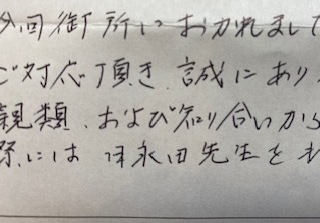 今回御所におかれまして
ご対応頂き、誠にあり
親類、および知り合いから
際には 永田先生を